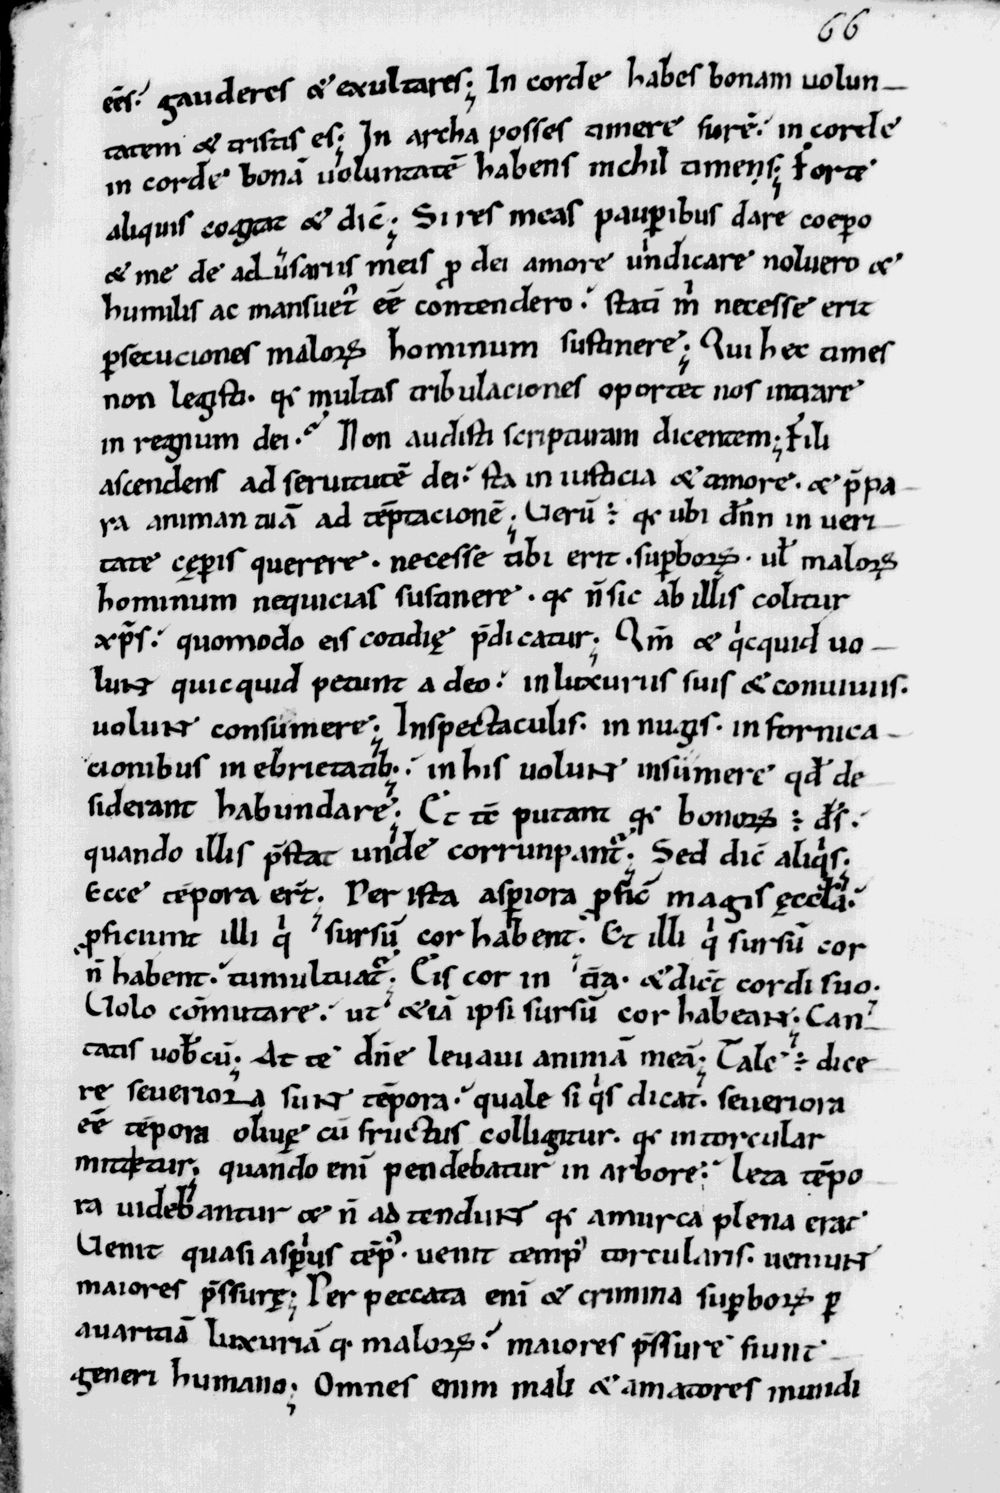 66
ēēs. gauderes & exultares; In corde habes bonam uolun
tatem & tristis es; In archa posses timere furē. in corde
in corde bonā uoluntatē habens nichil timens; Forte
aliquis cogitat & dic̄; Si res meas pauꝑibus dare coepo
& me de aduersariis meis ꝓ dei amore uindicare noluero &
humilis ac mansuet᷑ eē contendero. statī m̍ necesse erit
ꝑsecuciones maloꝝ hominum sustinere; Qui hec times
non legisti. qꝛ multas tribulaciones oportet nos intrare
in regnum dei. Non audisti scripturam dicentem; Fili
ascendens ad seruitutē dei. sta in iusticia & timore. & p̄pa
ra animan tuā ad tēptacionē; Verū ÷ qꝛ ubi dn̄m in ueri
tate cęꝑis querere. necesse tibi erit. suꝑboꝝ. ul̄ maloꝝ
hominum nequicias sustinere. qꝛ n̄ sic ab illis colitur
xp̄s. quomodo eis cotidię p̄dicatur; Qm̄ & q̍cquid uo
lunt quicquid petunt a deo. in luxuriis suis & conuiuiis.
uolunt consumere; In spectaculis. in nugis. in fornica
cionibus in ebrietatib; in his uolunt insumere qd̄ de
siderant habundare; Et tē putant qꝛ bonoꝝ ÷ d̄s.
quando illis p̄stat unde corrunpant᷑; Sed dic̄ aliq̍s;
Ecce tēpora er̄t; Per ista asꝑiora ꝓfic̄ magis ęccl̄a.
ꝓficiunt illi q̍ sursū cor habent. Et illi q̍ sursū cor
n̄ habent. tumultuat᷑; Eis cor in t̄ra. & dic̄t cordi suo.
Volo cōmutare. ut &iā ipsi sursū cor habeant; Can
tatis uob̄cū; At te dn̄e leuaui animā meā; Tale ÷ dice
re seueriora sunt tēpora. quale si q̍s dicat. seueriora
eē tēpora oliuę cū fructus colligitur. qꝛ in torcular
mittetur; quando enī pendebatur in arbore. leta tēpo
ra uideb̄antur & n̄ adtendunt qꝛ amurca plena erat
Venit quasi asꝑius tēp᾽. uenit temp᾽ torcularis. ueniunt
maiores p̄ssurę; Per peccata enī & crimina suꝑboꝝ ꝑ
auaritiā luxuriā qꝫ maloꝝ. maiores p̄ssure fiunt
generi humano; Omnes enim mali & amatores mundi